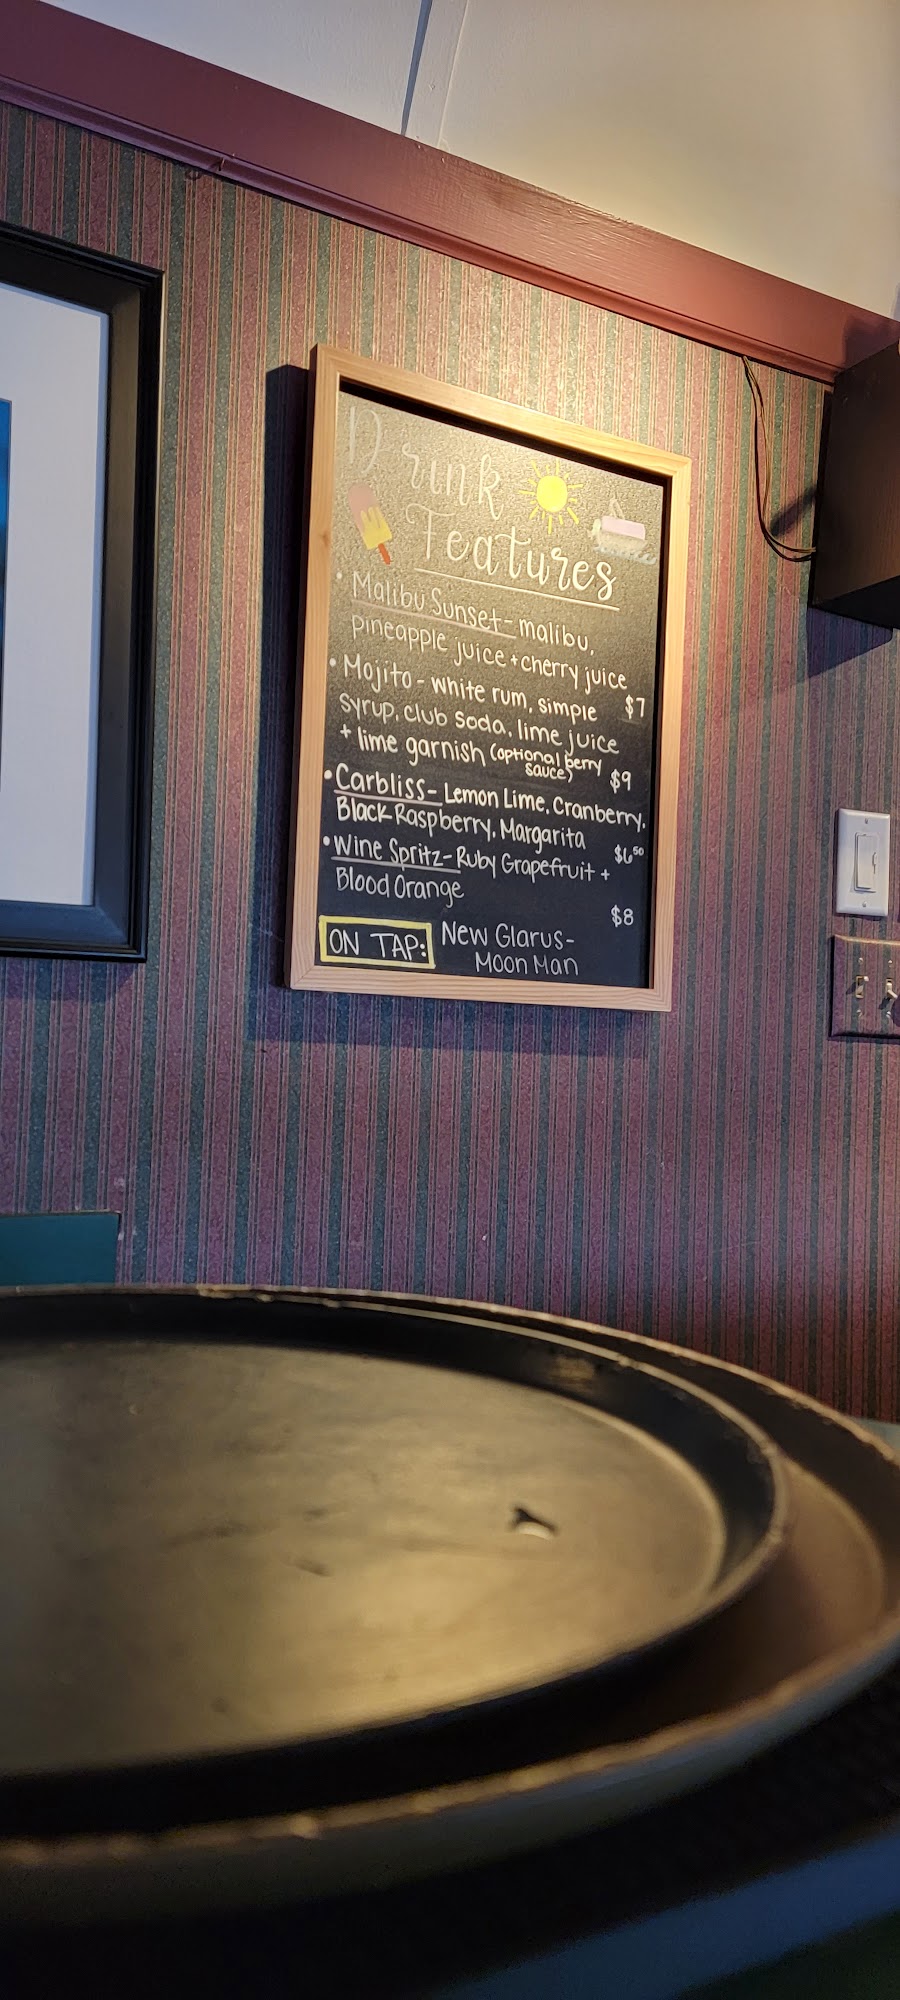 Drink
Features
• Malibu Sunset - malibu,
pineapple juice + cherry juice
$7
• Mojito - white rum, simple
syrup, club soda, lime juice
+ lime garnish (optional berry
sauce)
$9
• Carbliss - Lemon Lime, Cranberry,
Black Raspberry, Margarita
$6⁵⁰
• Wine Spritz - Ruby Grapefruit +
Blood Orange
$8
ON TAP: New Glarus -
Moon Man